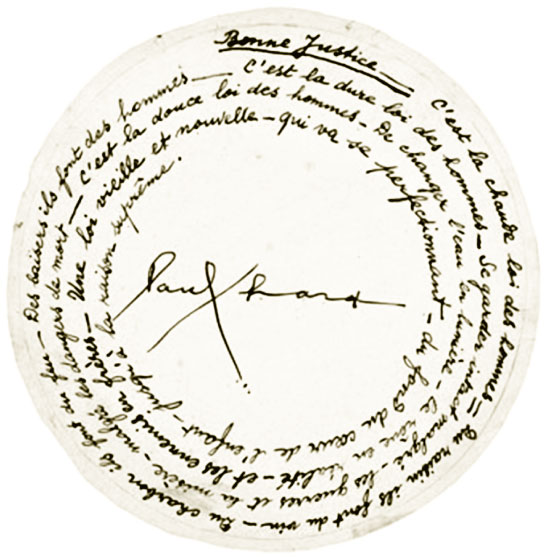 Bonne Justice
C'est la chaude loi des hommes — Du raisin ils font du vin — Du charbon ils font du feu — Des baisers ils font des hommes —
C'est la dure loi des hommes — Se garder intact malgré — les guerres et la misère — malgré les dangers de mort —
C'est la douce loi des hommes — De changer l'eau en lumière — Le rêve en réalité — et les ennemis en frères —
Une loi vieille et nouvelle — qui va se perfectionnant — du fond du cœur de l'enfant — jusqu'à la raison suprême.
Paul Eluard